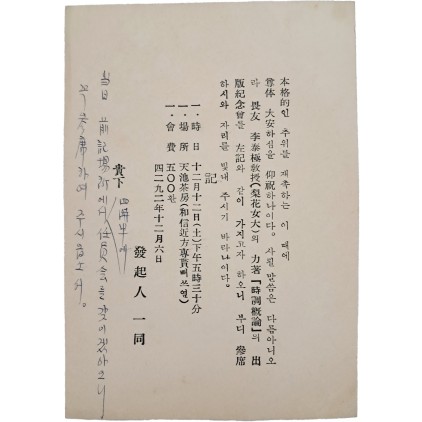 本格的인 추위를 재촉하는 이 때에
尊体 大安하심을 仰祝하나이다. 사뢸 말씀은 다름아니오
라 畏友 李泰極敎授(梨花女大)의 力著『時調槪論』의 出
版紀念會를 左記와 같이 가지고자 하오니 부디 參席
하시와 자리를 빛내 주시기 바라나이다.
記
一·時日 十二月十二日(土)下午五時三十分
一·場所 天池茶房(和信近方專賣빼쓰옆)
一·會費 五〇〇환
四二九二年十二月六日
發起人 一同
貴下
四時半에
当日 前記場所에서 任員会를 갖이겠아오니
꼭 参席하여 주시옵소서.